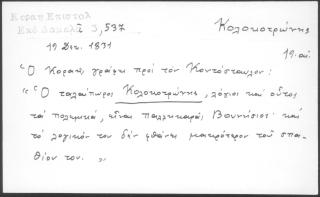 Κοραη Επιστολ
Εκδ Δαμαλᾶ 3,537
Κολοκοτρώνης
19 Δεκ. 1831
19. αἰ.
Ὁ Κοραῆς γράφει πρὸς τὸν Κοντόσταυλον:
"Ὁ ταλαίπωρος Κολοκοτρώνης, λόγιος καὶ οὗτος
τὰ πολεμικά, εἶναι παλληκαρᾶς Βουνήσιος καὶ
τὸ λογικόν του δὲν φθάνει μακρότερον τοῦ σπα-
θίου του. "